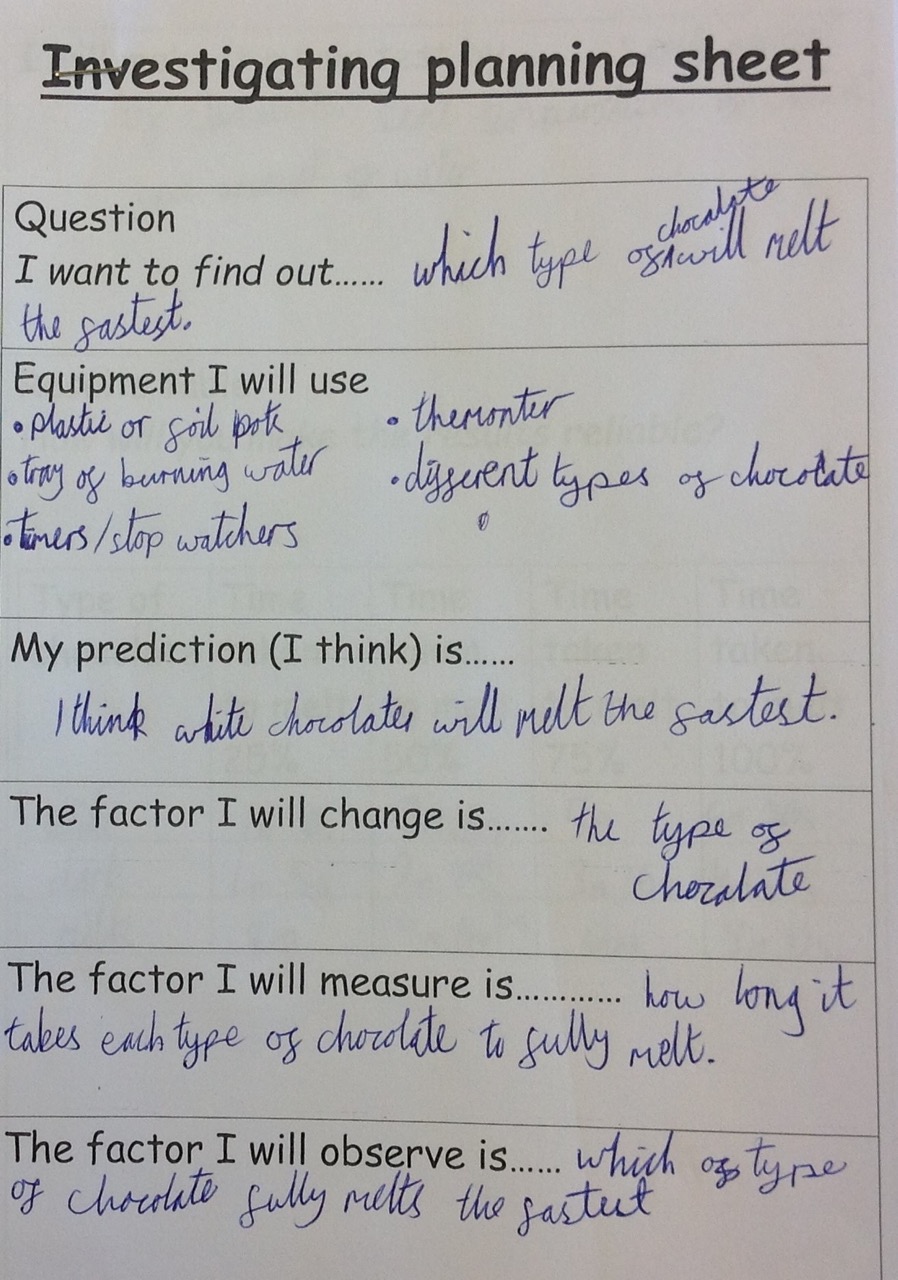 Investigating planning sheet
Question
chocalate
I want to find out...... which type of ^ will melt
the fastest.
Equipment I will use
• plastic or foil pots • themonter
• tray of burning water • different types of chocolate
• timers/stop watchers
My prediction (I think) is......
I think white chocolates will melt the fastest.
The factor I will change is....... the type of
chocalate
The factor I will measure is............ how long it
takes each type of chocolate to fully melt.
The factor I will observe is...... which of type
of chocolate fully melts the fastest